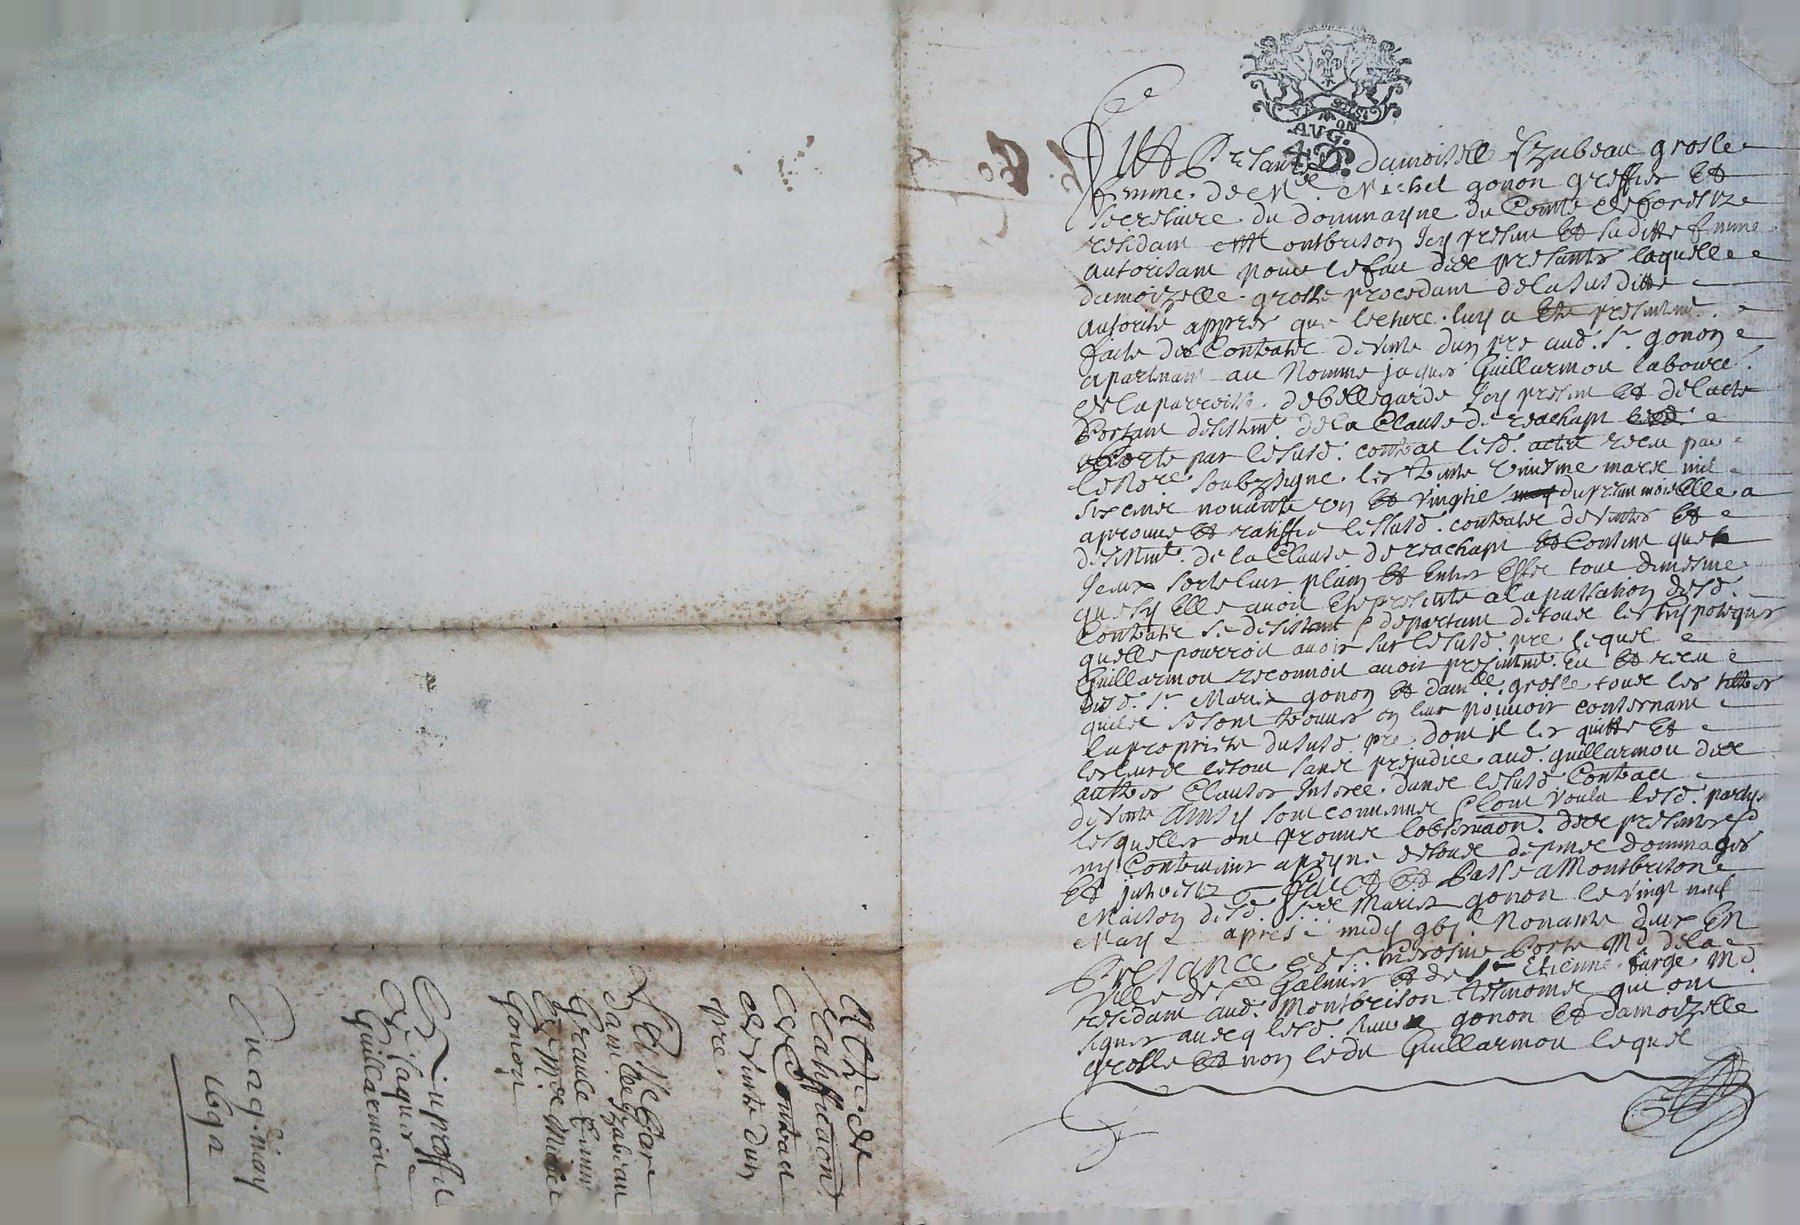 AUG.
Fut presante damoiselle Yzabeau grosle
femme de Mre Michel gonon greffier et
secretaire du dommayne du Comte de forestz
residam a Montbrison Icy presant et saditte femme
autorisant pour le fait des presantes laquelle
damoizelle grosle procedant de la susditte
autorite appres que lecture luy a este presentemt
faite du Contract de vente dun pre aud. Sr gonon
apartenant au Nomme jaques Guillarmou laboure
de la parroisse de bellegarde Icy presant et de lacte
Portant desistemt de la Clause de reachapt
par lesusd. contrat lesd. actes receu par
le Nore soubzsigne les
six cent nonante un et vingtie du presan mois elle a
aprouve et ratiffie lesusd. contract de vente et
desistemt de la Clause de reachapt et Consent que
Iceux sorte leur plain et entier effet tout de mesme
que sy elle avoit este presente a la passation desd.
Contracts se desistant & departant de tous les hypoteques
quelle pourroit avoir sur le susd. pre lequel
Guillarmou reconnoit avoir presentemt eu et receu
dud. Sr Maries gonon et damlle grosle tous les tiltres
quilz se sont trouves en leur pouvoir consernant
la propriete du susd. pre dont il les quitte et
le tout sans prejudice aud. guillarmou des
autres Clauses Inseree dans le susd. Contract
de vente Ainsy sont convenus & lont voulu lesd. partys
lesquelles ont promis lobservaon des presantes &
ny Contrevenir a peyne de tous depens dommages
et interestz Fait et Passe a Montbrison
Maison desd. Sr de Maries gonon le vingt neuf
May apres midy Nonante deux En
Presance de Sr hierosme Porte Md de la
Ville de St Galmier et de Sr Etienne farge Md
residant aud. Montbrison tesmoins qui ont
signes avecq lesd. sieur gonon et damoizelle
grosle et non ledit Guillarmou lequel
Acte de
Ratification
de Contract
de vente dun
pre.
Par
Dam.lle Yzabeau
Grausle femme
de Mre Michel
Gonon
Au proffit
de Jaques
Guillarmou
Du 29e may
1692